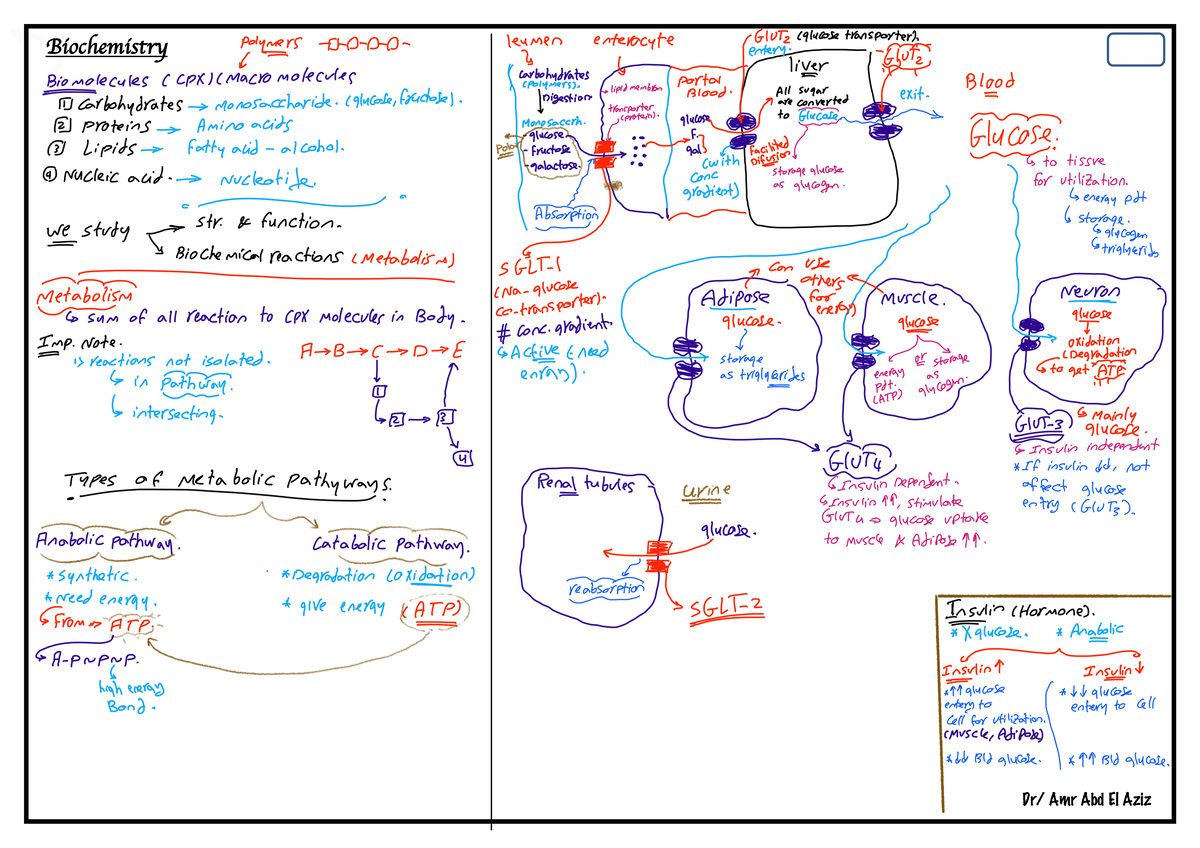 Biochemistry
Polymers
Biomolecules (CPX) (Macromolecules
1 Carbohydrates → Monosaccharide. (glucose, fructose).
2 Proteins → Amino acids
3 Lipids → Fatty acid - alcohol.
4 Nucleic acid. → Nucleotide.
we study
str. & function.
Biochemical reactions (Metabolism)
Metabolism
sum of all reaction to CPX molecules in Body.
Imp. Note.
1) reactions not isolated.
in Pathway.
intersecting.
A → B → C → D → E
1
2 → 3
4
Types of Metabolic Pathyways.
Anabolic pathway.
* Synthetic.
* Need energy.
From ⇒ ATP.
A-P~P~P.
high energy
Bond.
Catabolic Pathway.
* Degradation (oxidation)
* give energy (ATP)
leumen
enterocyte
GlUT2 (glucose transporter).
entery.
GLUT2
exit.
Carbohydrates
(polymers).
Digestion
Monosacch.
- glucose
- fructose
- galactose.
Polar
Absorption
lipid membran
transporter
(protein).
Portal
Blood.
glucose
F.
gal
(with
conc
gradient)
Facilited
Difusion
liver
All sugar
are converted
to Glucose
storage glucose
as glycogen.
SGLT-1
(Na-glucose
co-transporter).
# conc. gradient.
Active (need
enrgy).
Blood
Glucose.
to tissue
for utilization.
energy pdt
storage.
glycogen
triglyerids
can use
others
for
energy)
Adipose
glucose.
storage
as triglyerides
Muscle.
glucose
or
energy
pdt.
(ATP)
storage
as
glycogen.
Neuron
glucose
oxidation
(Degradation
to get ATP
Mainly
glucose.
GlUT-3
Insulin independent
* If insulin ↓↓, not
affect glucose
entry (GlUT3).
GlUT4
Insulin Dependent.
Insulin ↑↑, stimulate
GlUT4 ⇒ glucose uptake
to muscle & Adipose ↑↑.
Renal tubules
urine
glucose.
reabsorption
SGLT-2
Insulin (Hormone).
* X glucose. * Anabolic
Insulin ↑
* ↑↑ glucose
entery to
cell for utilization.
(Muscle, Adipose)
* ↓↓ Bld glucose.
Insulin ↓
* ↓↓ glucose
entery to cell
* ↑↑ Bld glucose.
Dr/ Amr Abd El Aziz